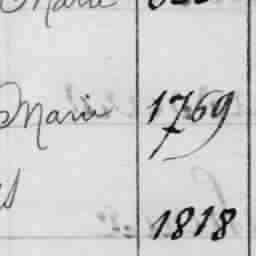 Marie
Marie 1769
1818